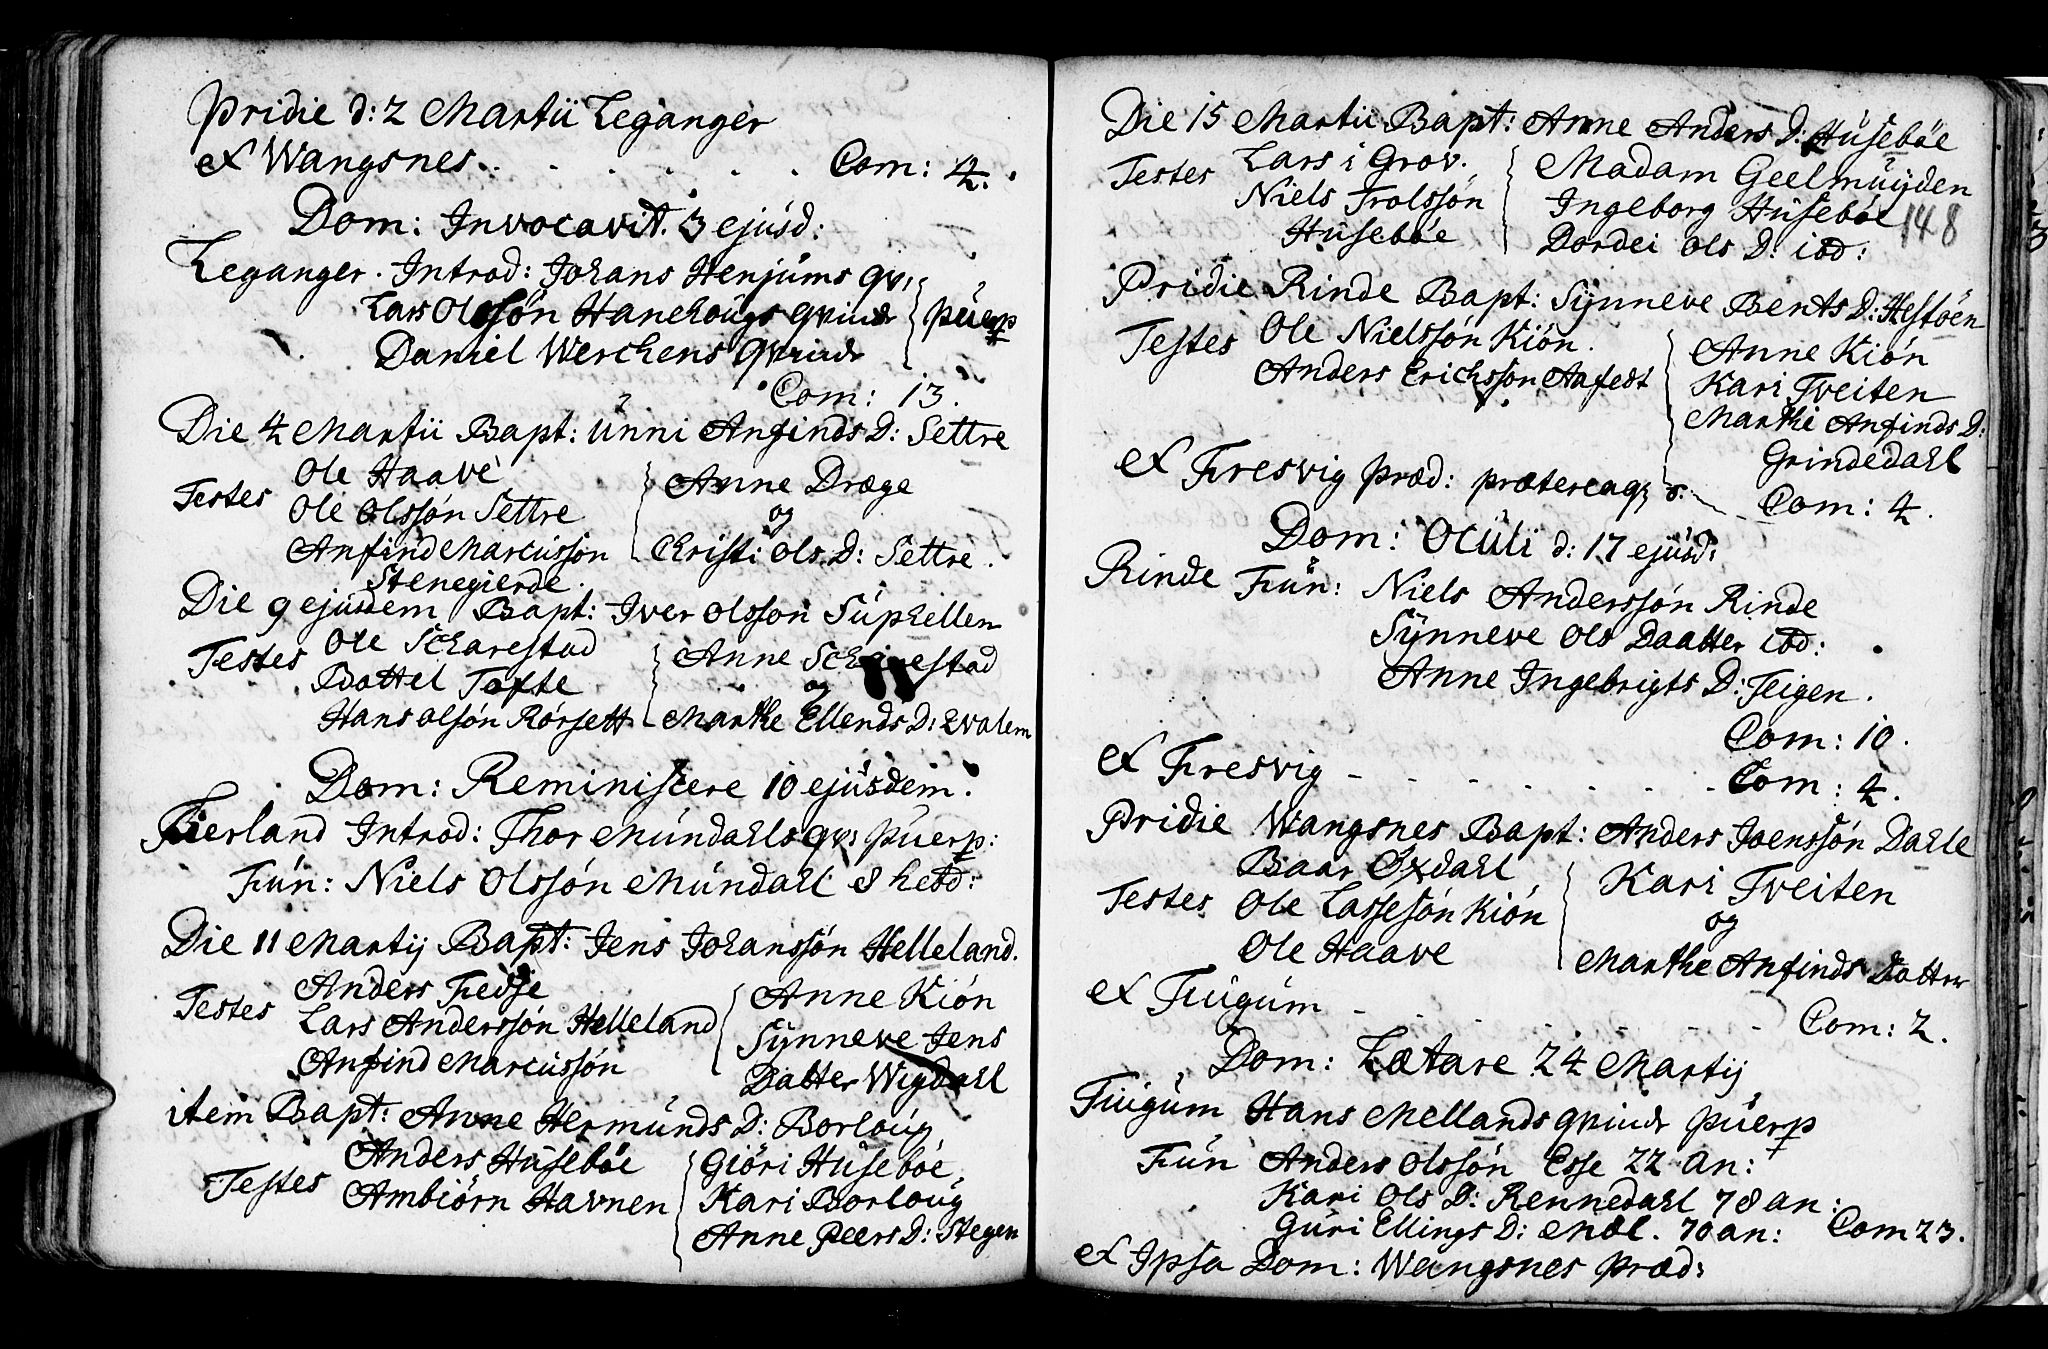 Pridie d: 2 Martii Leganger
et Wangsnes . . . . . . Com: 4.
Dom: Invocavit. 3 ejusd:
Leganger. Introd: Johans Henjums qv:
Lars Olssøn Hanehougs qvinde } puerp
Daniel Werchens qvinde
Com: 13.
Die 4 Martii Bapt: Unni Anfinds D: Settre
Testes Ole Haave
Ole Olssøn Settre
Anfind Marcussøn
Stenegierde.
Anne Dræge
og
Christi Ols D: Settre.
Die 9 ejusdem Bapt: Iver Olsson Suphellen
Testes Ole Scharestad
Bottel Tofte
Hans Olsøn Rørsett
Anne Scharestad
og
Marthe Ellends D: Qvalem
Dom: Reminiscere 10 ejusdem.
Fierland Introd: Thor Mundahls qv: puerp:
Fun: Niels Olssøn Mundahl 8 hebd:
Die 11 Martij Bapt: Jens Johanssøn Helleland.
Testes Anders Fedje
Lars Anderssøn Helleland
Anfind Marcussøn
Anne Kiøn
Synneve Jens
Datter Wigdahl
item Bapt: Anne Hermunds D: Borloug
Testes Anders Husebøe
Ambiørn Havnen
Giøri Husebøe
Kari Borloug
Anne Peers D: Stegen
Die 15 Martii Bapt: Anne Anders D: Husebøe
Testes Lars i Grov.
Niels Trolssøn
Husebøe
Madam Geelmuyden
Ingeborg Husebøe
Dordei Ols D: ibd:
148
Pridie Rinde Bapt: Synneve Bents D: Hestøen
Testes Ole Nielssøn Kiøn.
Anders Erichsson Aafedt
Anne Kiøn
Kari Tveiten
Marthe Anfinds D:
Grindedahl
et Fresvig Præd: prætereaq; o. Com: 4.
Dom: Oculi d: 17 ejusd:
Rinde Fun: Niels Anderssøn Rinde
Synneve Ols Daatter ibd:
Anne Ingebrigts D: Teigen.
Com: 10.
et Fresvig - . . . . . . Com: 4.
Pridie Wangsnes Bapt: Anders Joenssøn Dahle
Testes Baar Øxdahl
Ole Lassesøn Kiøn
Ole Haave
Kari Tveiten
og
Marthe Anfinds Datter
et Fuigum - - - - - - Com: 2.
Dom: Lætare 24 Martij
Fuigum Hans Mellands qvinde puerp
Fun Anders Olssøn Esse 22 an:
Kari Ols D: Rennedahl 78 an:
Guri Ellings D: Mæl. 70 an: Com 23.
et Ipsa Dom: Wangsnes præd: